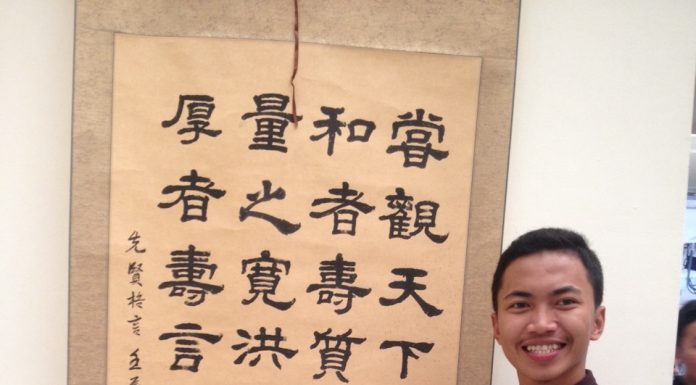 嘗觀天下
和者壽質
量之寬洪
厚者壽言
先賢格言